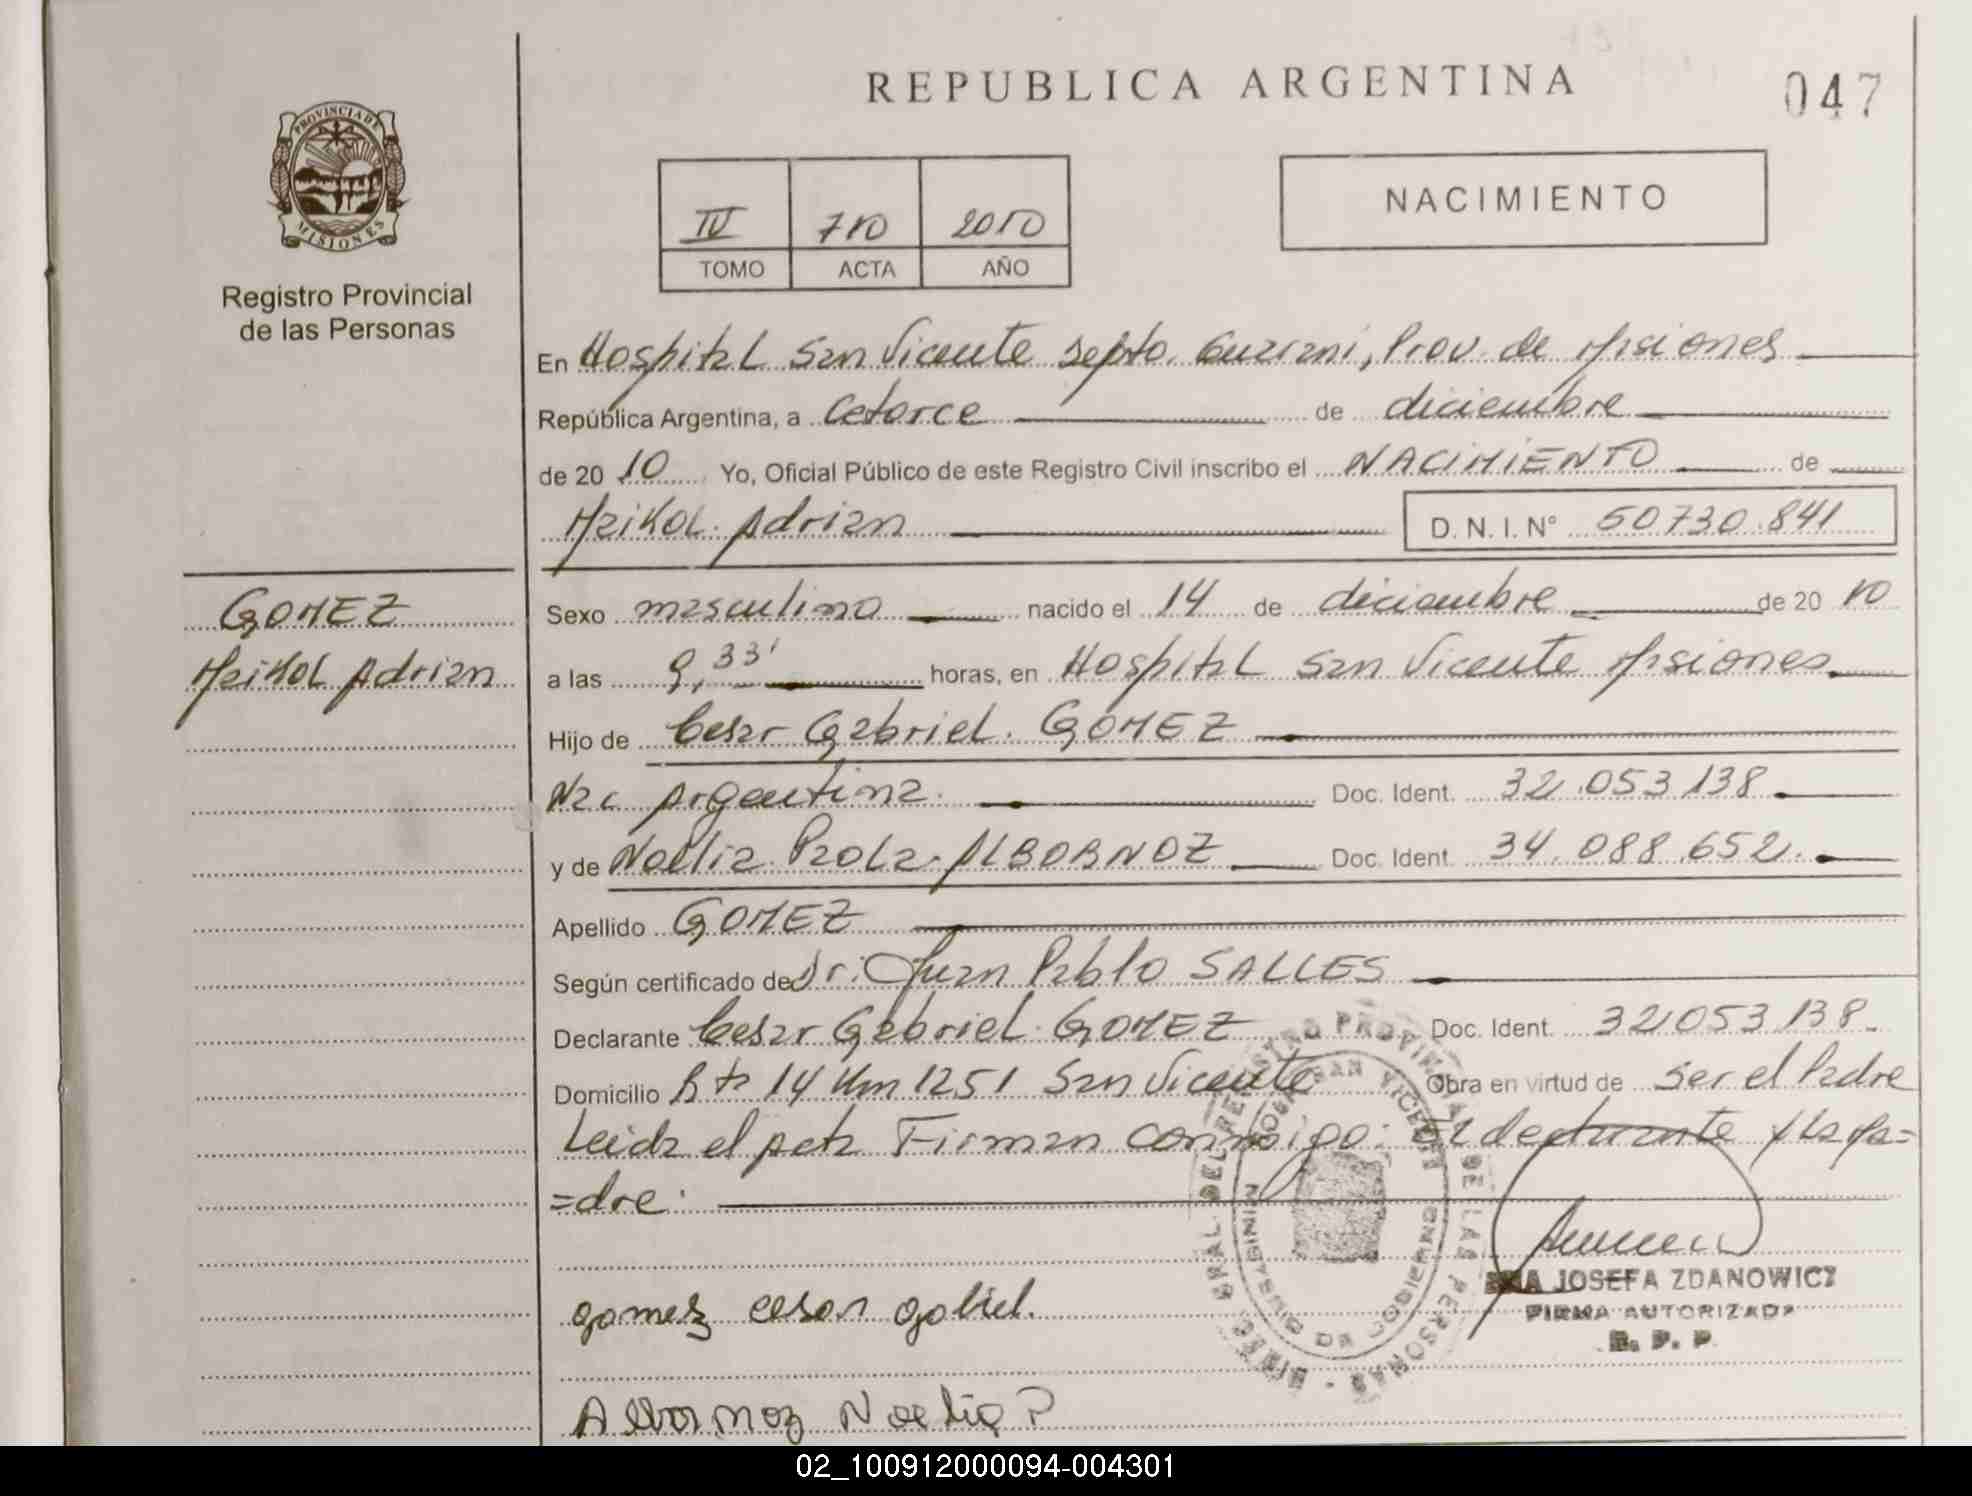 REPUBLICA ARGENTINA
047
PROVINCIA DE MISIONES
Registro Provincial
de las Personas
IV 710 2010
TOMO ACTA AÑO
NACIMIENTO
En Hospital San Vicente Depto. Guarani, Prov. de Misiones
República Argentina, a Catorce de diciembre
de 20 10 Yo, Oficial Público de este Registro Civil inscribo el NACIMIENTO de
Maikol Adrian D. N. I. N° 50730.841
GOMEZ
Maikol Adrian
Sexo masculino nacido el 14 de diciembre de 20 10
a las 9,33' horas, en Hospital San Vicente Misiones
Hijo de Cesar Gabriel. GOMEZ
Nac Argentina. Doc. Ident. 32.053.138
y de Noelia Paola ALBORNOZ Doc. Ident. 34.088.652.
Apellido GOMEZ
Según certificado de Dr: Juan Pablo SALLES
Declarante Cesar Gabriel GOMEZ Doc. Ident. 32.053.138
Domicilio Rta 14 Km 1251 San Vicente Obra en virtud de ser el Padre
Leida el Acta Firman conmigo: El declarante y la Ma=
=dre.
gomez cesar gabiel.
Albornoz Noelia P
JOSEFA ZDANOWICZ
FIRMA AUTORIZADA
R. P. P.
DIREC. GRAL. DEL REGISTRO PROVINCIAL DE LAS PERSONAS
SAN VICENTE
MINISTERIO DE GOBIERNO
02_100912000094-004301